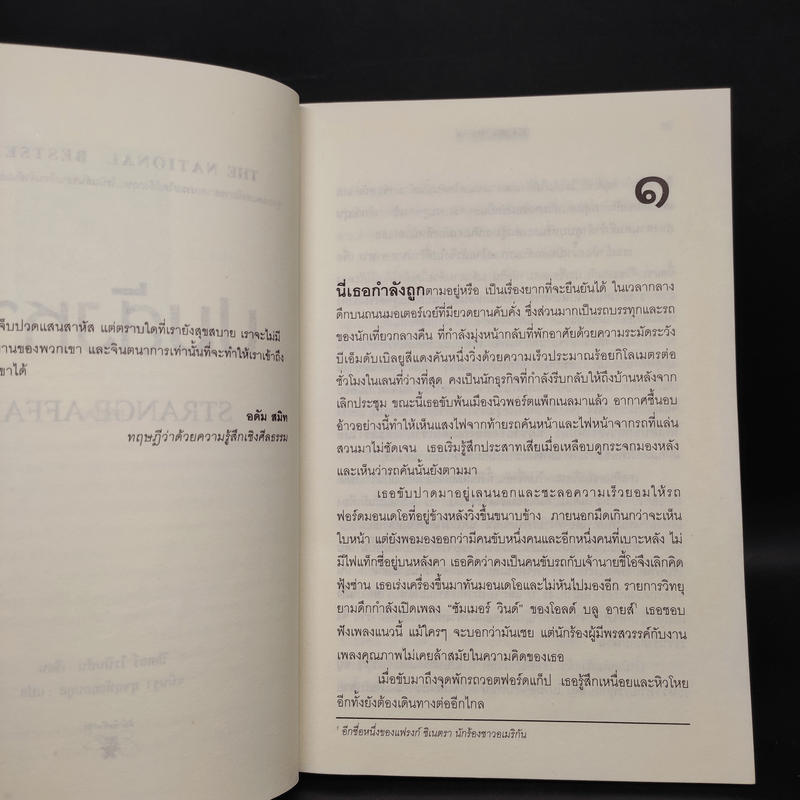 จ็บปวดแสนสาหัส แต่ตราบใดที่เรายังสุขสบาย เราจะไม่มี
านของพวกเขา และจินตนาการเท่านั้นที่จะทำให้เราเข้าถึง
ขาได้
อดัม สมิท
ทฤษฎีว่าด้วยความรู้สึกเชิงศีลธรรม
๑
นี่เธอกำลังถูกตามอยู่หรือ เป็นเรื่องยากที่จะยืนยันได้ ในเวลากลาง
ดึกบนถนนมอเตอร์เวย์ที่มียวดยานคับคั่ง ซึ่งส่วนมากเป็นรถบรรทุกและรถ
ของนักเที่ยวกลางคืน ที่กำลังมุ่งหน้ากลับที่พักอาศัยด้วยความระมัดระวัง
บีเอ็มดับเบิลยูสีแดงคันหนึ่งวิ่งด้วยความเร็วประมาณร้อยกิโลเมตรต่อ
ชั่วโมงในเลนที่ว่างที่สุด คงเป็นนักธุรกิจที่กำลังรีบกลับให้ถึงบ้านหลังจาก
เลิกประชุม ขณะนี้เธอขับพ้นเมืองนิวพอร์ตแพ็กเนลมาแล้ว อากาศชื้นอบ
อ้าวอย่างนี้ทำให้เห็นแสงไฟจากท้ายรถคันหน้าและไฟหน้าจากรถที่แล่น
สวนมาไม่ชัดเจน เธอเริ่มรู้สึกประสาทเสียเมื่อเหลือบดูกระจกมองหลัง
และเห็นว่ารถคันนั้นยังตามมา
เธอขับปาดมาอยู่เลนนอกและชะลอความเร็วยอมให้รถ
ฟอร์ดมอนเดโอที่อยู่ข้างหลังวิ่งขึ้นขนาบข้าง ภายนอกมืดเกินกว่าจะเห็น
ใบหน้า แต่ยังพอมองออกว่ามีคนขับหนึ่งคนและอีกหนึ่งคนที่เบาะหลัง ไม่
มีไฟแท็กซี่อยู่บนหลังคา เธอคิดว่าคงเป็นคนขับรถกับเจ้านายขี้โอ่จึงเลิกคิด
ฟุ้งซ่าน เธอเร่งเครื่องขึ้นมาทันมอนเดโอและไม่หันไปมองอีก รายการวิทยุ
ยามดึกกำลังเปิดเพลง "ซัมเมอร์ วินด์" ของโอลด์ บลู อายส์¹ เธอชอบ
ฟังเพลงแนวนี้ แม้ใครๆ จะบอกว่ามันเชย แต่นักร้องผู้มีพรสวรรค์กับงาน
เพลงคุณภาพไม่เคยล้าสมัยในความคิดของเธอ
เมื่อขับมาถึงจุดพักรถวอตฟอร์ดแก็ป เธอรู้สึกเหนื่อยและหิวโหย
อีกทั้งยังต้องเดินทางต่ออีกไกล
¹ อีกชื่อหนึ่งของแฟรงก์ ซิเนตรา นักร้องชาวอเมริกัน